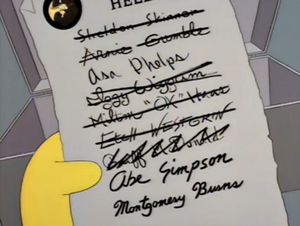 HELL
Sheldon Skinner
Arnie Gumble
Asa Phelps
Iggy Wiggum
Milton "OX" Haas
Etch WESTGRIN
Griff McDonald
Abe Simpson
Montgomery Burns